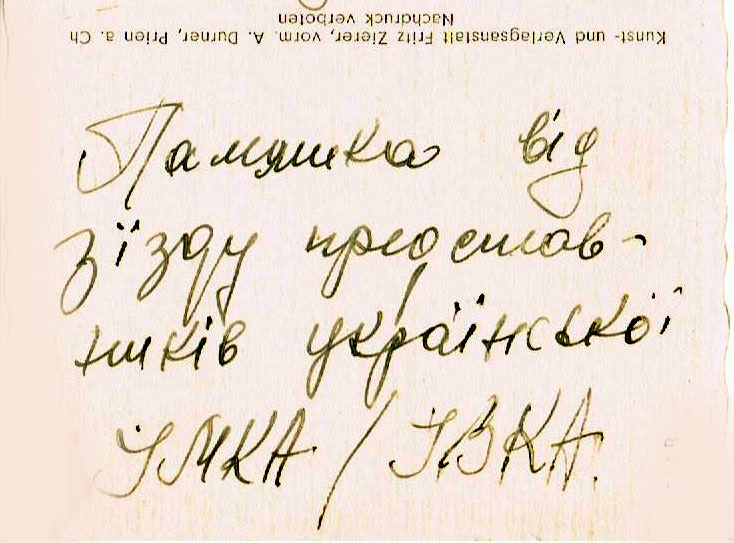 Kunst- und Verlagsanstalt Fritz Zierer, vorm. A. Durner, Prien a. Ch
Nachdruck verboten
Памятка від
зїзду представ-
ників української
ІМКА / ІВКА.